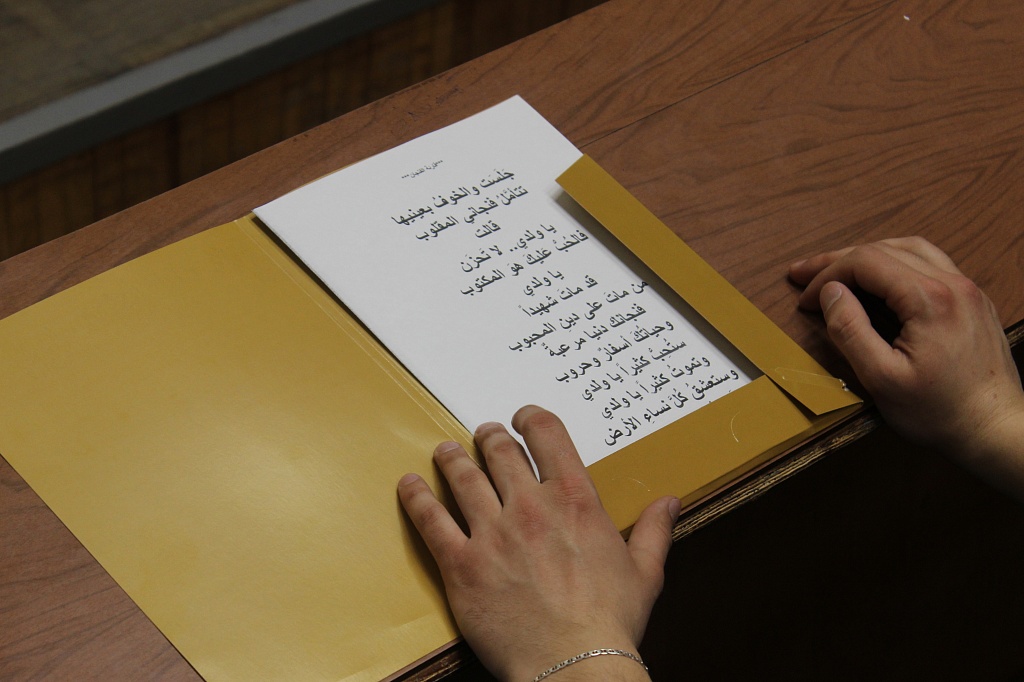 ***قارئة الفنجان***
جَلَسَت والخوفُ بعينيها
تتأمَّلُ فنجاني المقلوب
قالت
يا ولدي.. لا تَحزَن
فالحُبُّ عَليكَ هوَ المكتوب
يا ولدي
قد ماتَ شهيداً
من ماتَ على دينِ المحبوب
فنجانك دنيا مرعبةٌ
وحياتُكَ أسفارٌ وحروب
ستُحِبُّ كثيراً يا ولدي
وتموتُ كثيراً يا ولدي
وستعشقُ كُلَّ نساءِ الأرض